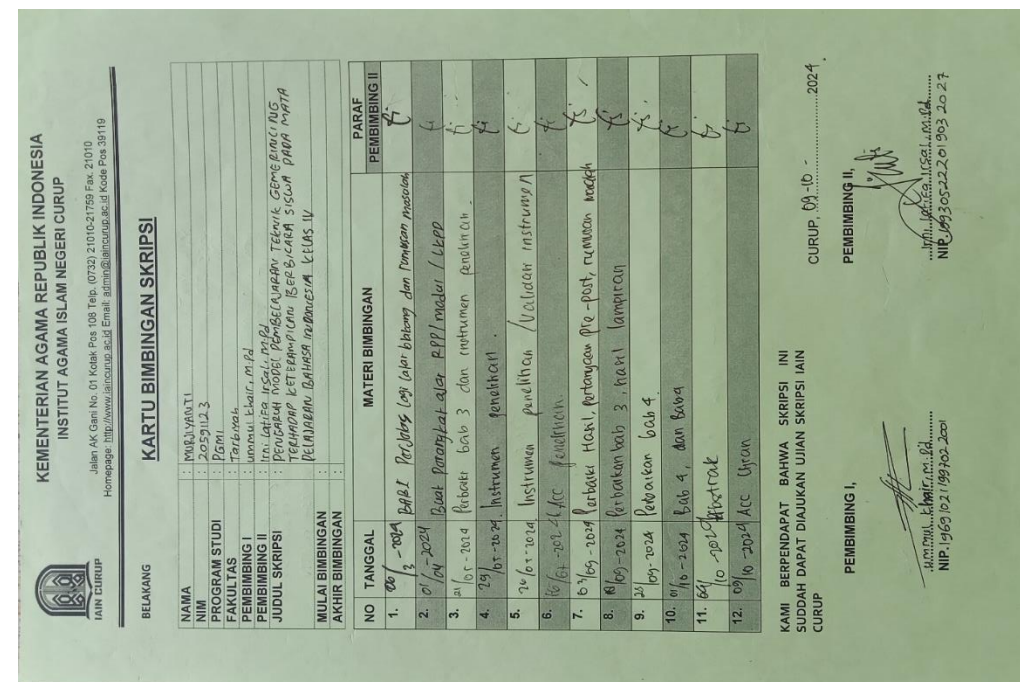 IAIN CURUP
KEMENTERIAN AGAMA REPUBLIK INDONESIA
INSTITUT AGAMA ISLAM NEGERI CURUP
Jalan AK Gani No. 01 Kotak Pos 108 Telp. (0732) 21010-21759 Fax. 21010
Homepage: http://www.iaincurup.ac.id Email: admin@iaincurup.ac.id Kode Pos 39119
BELAKANG
KARTU BIMBINGAN SKRIPSI
NAMA : MURJIYANTI
NIM : 20591123
PROGRAM STUDI : PGMI
FAKULTAS : Tarbiyah
PEMBIMBING I : ummul khair, M.Pd
PEMBIMBING II : Irni Latifa Irsal, M.Pd
JUDUL SKRIPSI : PENGARUH MODEL PEMBELAJARAN TEKNIK GEMERINCING
TERHADAP KETERAMPILAN BERBICARA SISWA PADA MATA
PELAJARAN BAHASA INDONESIA KELAS IV
MULAI BIMBINGAN :
AKHIR BIMBINGAN :
NO TANGGAL MATERI BIMBINGAN PARAF PEMBIMBING II
1. 06/3 - 2024 BAB I Perjelas lagi latar blkong dan rumusan masalah
2. 01/04 - 2024 Buat Perangkat ajar RPP/modur/LKPD
3. 21/05 - 2024 Perbaiki bab 3 dan instrumen penelitian.
4. 29/05 - 2024 Instrumen penelitian.
5. Instrumen penelitian /Validan instrumen
6. Acc penelitian.
7. 03/09 - 2024 Perbaiki Hasil, pertanyaan pre-post, rumusan
8. /09 - 2024 Perbaikan bab 3, hasil lampiran
9. /09 - 2024 Perbaikan bab 4
10. 01/10 - 2024 Bab 4, dan Bab 5
11. /10 - 2024 Abstrak
12. 09/10 - 2024 Acc Ujian
KAMI BERPENDAPAT BAHWA SKRIPSI INI
SUDDAH DAPAT DIAJUKAN UJIAN SKRIPSI IAIN
CURUP
CURUP, 09-10 - 2024
PEMBIMBING I,
ummul khair, m.Pd
NIP. 196910211997022001
PEMBIMBING II,
Irni Latifa Irsal, M.Pd
NIP. 199305222019032027